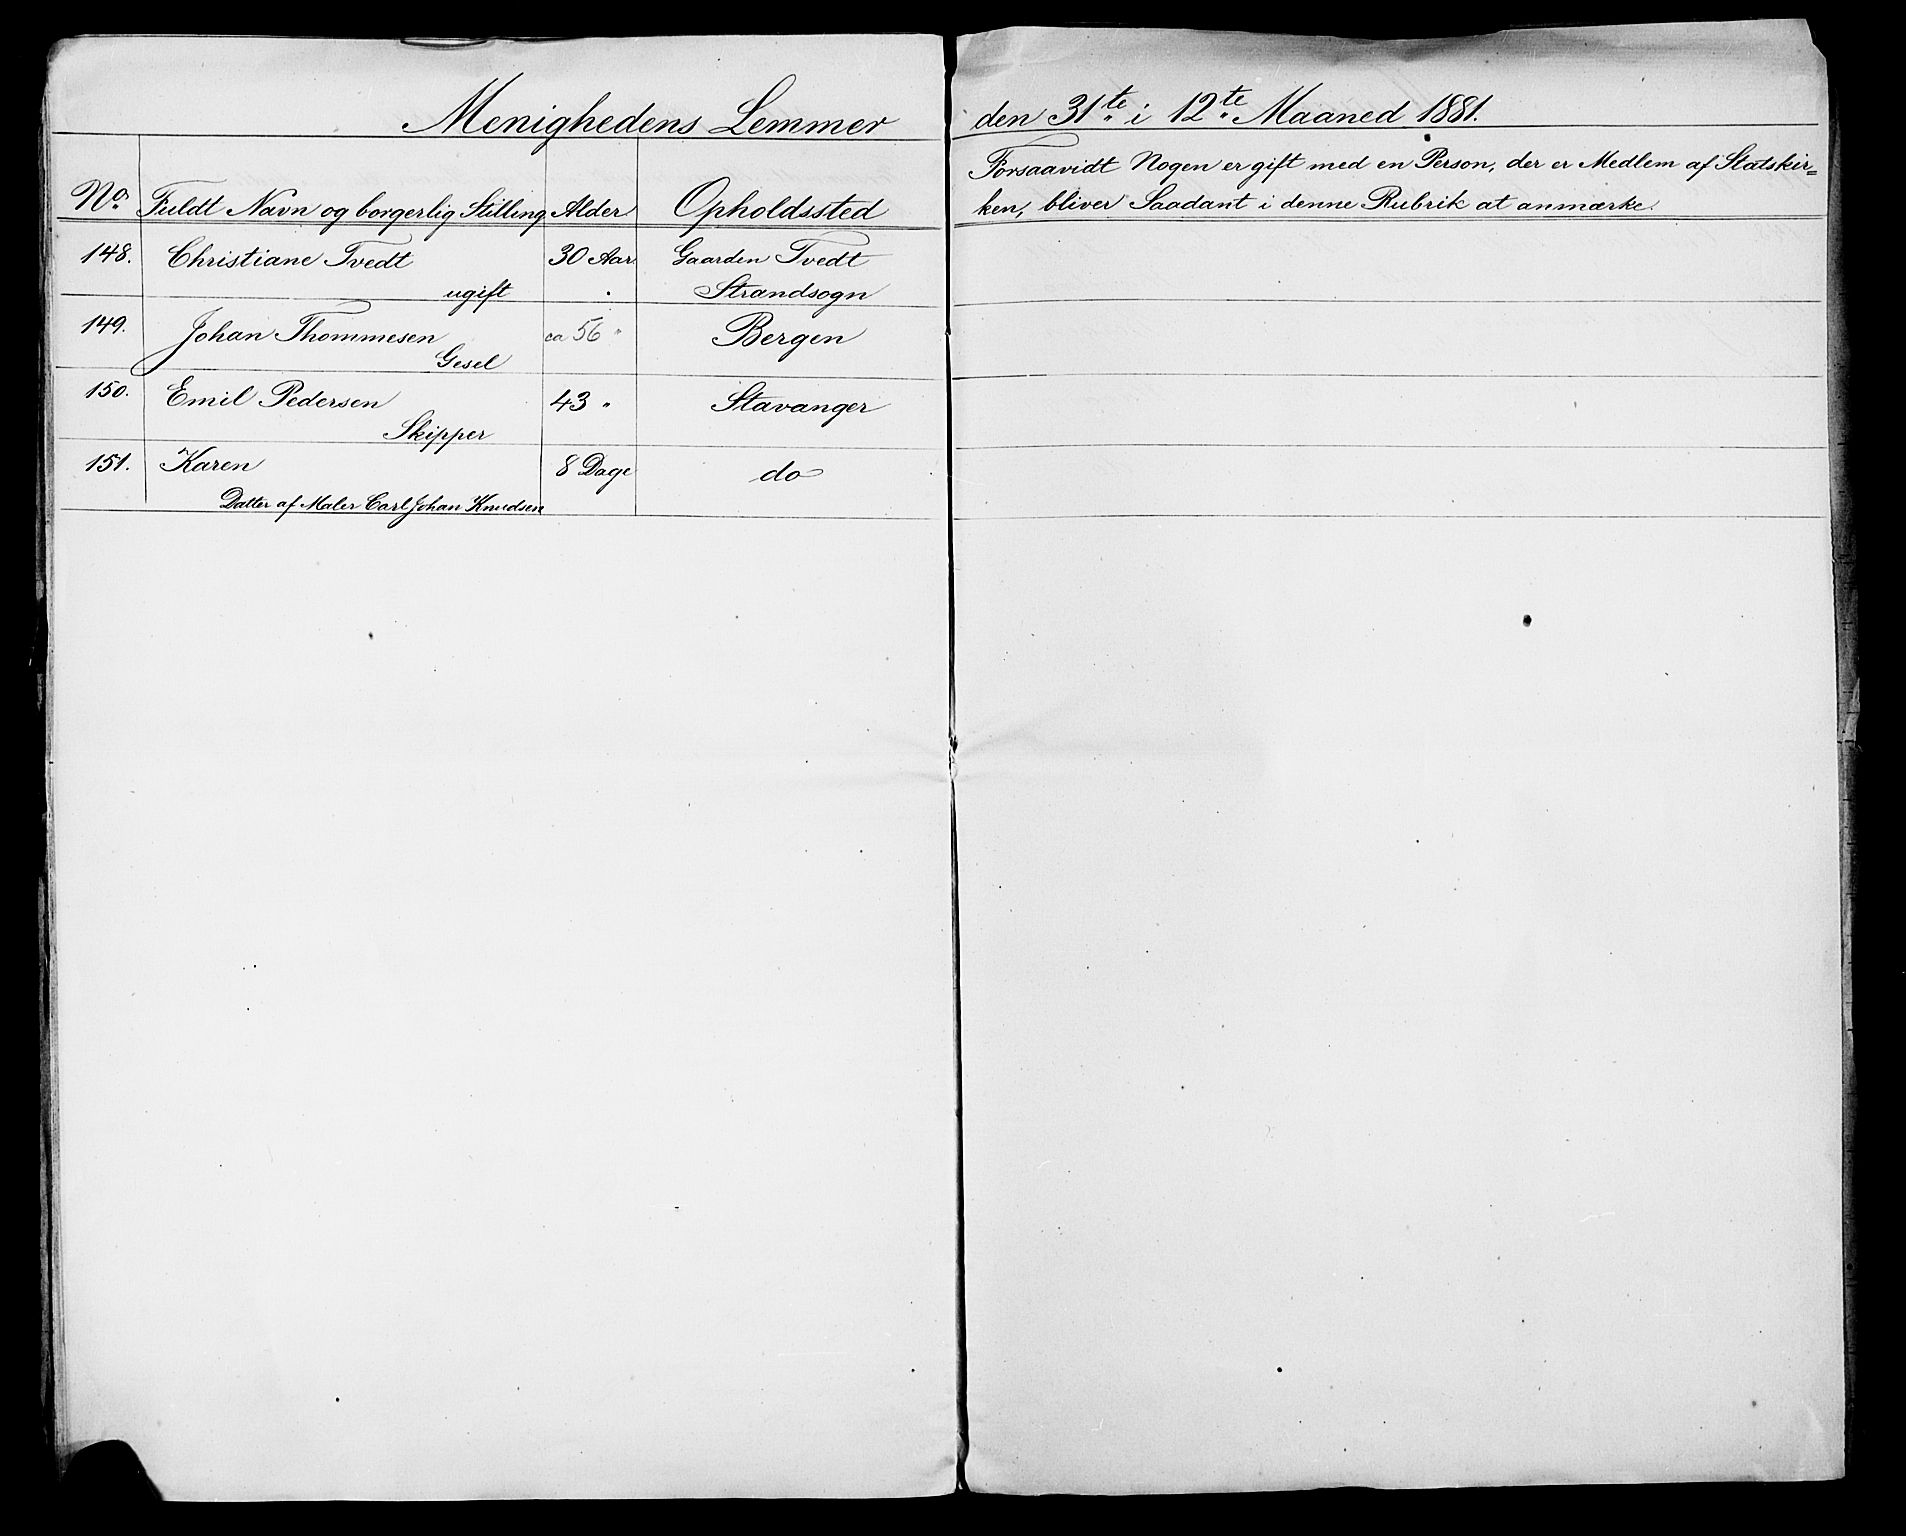 Menighedens Lemmer
den 31te i 12te Maaned 1881.
No. Fuldt Navn og borgerlig Stilling Alder Opholdssted
Forsaavidt Nogen er gift med en Person, der er Medlem af Statskir=
ken, bliver Saadant i denne Rubrik at anmærke.
148. Christiane Tvedt 30 Aar Gaarden Tvedt
ugift Strandsogn
149. Johan Thommesen ca 56 " Bergen
Gesel
150. Emil Pedersen 43 " Stavanger
Skipper
151. Karen 8 Dage do
Datter af Maler Carl Johan Knudsen